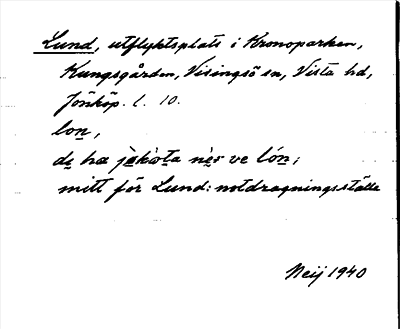 Lund, utflyktsplats i Kronoparken,
Kungsgården, Visingsö sn, Vista hd,
Jönköp. l. 10.
lon,
de ha jekota ner ve lón;
mitt för Lund: notdragningsställe
Neij 1940